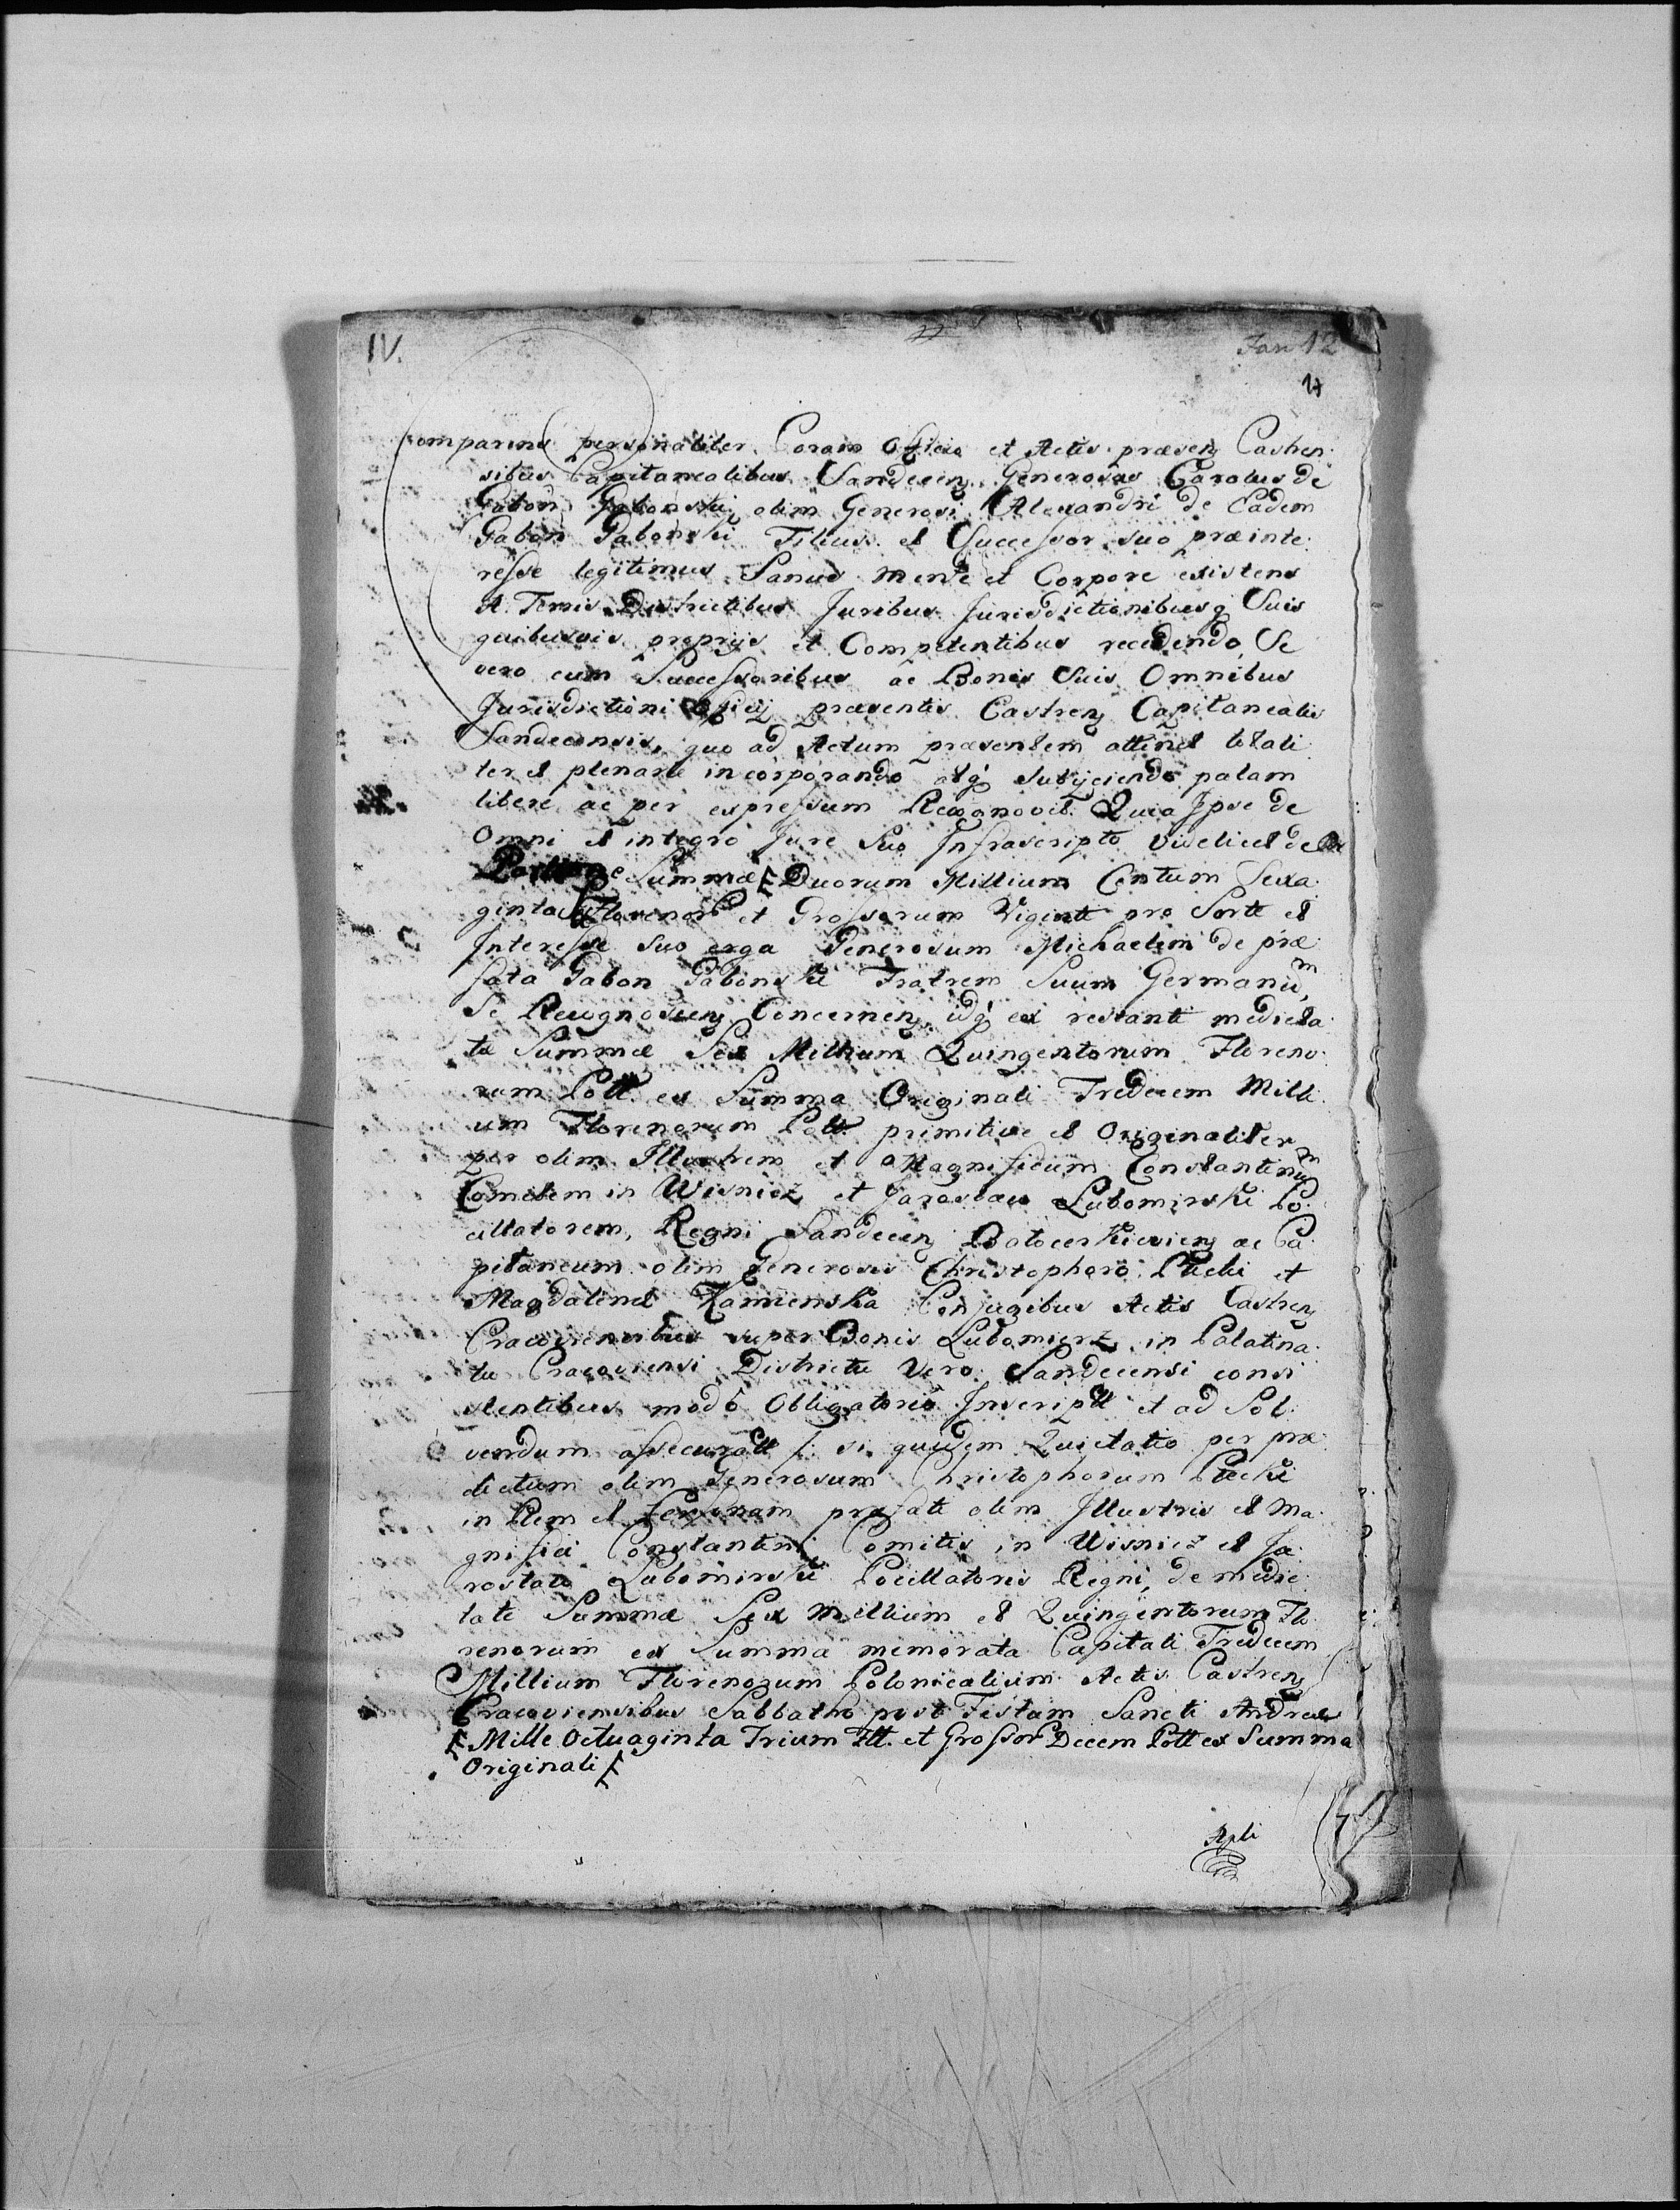 IV.
Jan 12
17
Comparens personaliter Coram Officio et Actis præsenɀ Castren:
sibus Capitanealibus Sandecenɀ Generosus Carolus de
Gabon Gabonski olim Generosi Alexandri de Eadem
Gabon Gabonski Filius et Successor suo præinte:
resse legitimus Sanus mente et Corpore existens
A Terris Districtibus Juribus Jurisdictionibusq Suis
quibusvis proprijs et Competentibus recedendo, Se
vero cum Successoribus ac Bonis Suis Omnibus
Jurisdictioni Officij præsentis Castrenɀ Capitanealis
Sandecensis, quo ad Actum præsentem attinet totali
ter et plenarie incorporando atq subijciendo palam
libere ac per expressum Recognovit. Quia Ipse de
Omni et integro Jure Suo Infrascripto videlicet de
Summæ Duorum Millium Centum Sexa:
ginta Florenor et Grossorum Viginti pro Sorte et
Interesse suo erga Generosum Michaelem de præ:
fata Gabon Gabonski Fratrem Suum Germanum,
Se Recognoscenɀ Concernenɀ idq ex restanti medieta:
te Summæ Sex Millium Quingentorum Floreno:
rum Poll. ex Summa Originali Tredecem Milli:
um Florenorum Poll. primitive et Originaliter
per olim Illustrem et Magnificum Constantinum
Comitem in Wisnicz et Jaroslau Lubomirski Po:
cillatorem, Regni Sandecenɀ Ca:
pitaneum olim Generosis Christophoro et
Magdalenæ Kamienska Conjugibus Actis Castrenɀ
Cracoviensibus super Bonis Lubomierz in Palatina:
tu Cracoviensi Districtu Vero Sandecensi consi
stentibus modo Obligatorio Inscriptt et ad Sol:
vendum assecuratt /: si quidem Quietatio per præ:
dictum olim Generosum Christophorum
in Rem et Personam præfati olim Illustris et Ma:
gnifici Constantini Comitis in Wisnicz et Ja:
roslau Lubomirski Pocillatoris Regni, de medie:
tate Summæ Sex Millium et Quingentorum Flo
renorum ex Summa memorata Capitali Tredecem
Millium Florenorum Polonicalium Actis Castrenɀ
Cracoviensibus Sabbatho post Festum Sancti Andreæ
Mille Octuaginta Trium Fll. et Grossor Decem Poll ex Summa
Originali